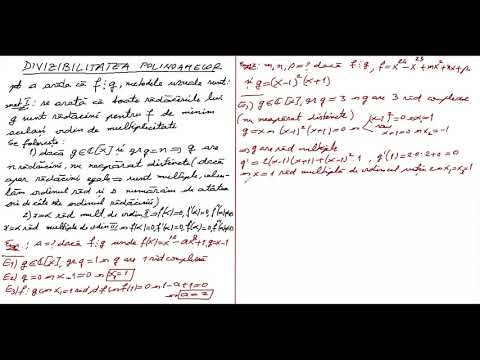 DIVIZIBILITATEA POLINOAMELOR
pt a arăta că f⋮g, metodele uzuale sunt:
met I: se arată că toate rădăcinile lui
g sunt rădăcini pentru f de minim
același ordin de multiplicitate
Se folosește:
1) dacă g∈ℂ[X] și gr g=n ⇒ g are
n rădăcini, nu neapărat distincte (dacă
apar rădăcini egale ⇒ sunt multiple,
ordinul răd și o numărăm de atâtea
ori de cât este ordinul rădăcinii)
2) x=α răd mult de ordin
x=α răd multiplă de ordin
Exp: a=? dacă f⋮g unde g=x-1
E1) g∈ℂ[X], gr g=1 ⇒ g are 1 răd complexă
E2) g=0 ⇒ x-1=0 ⇒ x₁=1
E3) f⋮g ⇒ f(1)=0 ⇒ 1-a+1=0
⇒ a=2
m, n, p=? dacă f⋮g,
și g=(x-1)²(x+1)
E1) g∈ℂ[X], gr g=3 ⇒ g are 3 răd complexe
(nu neapărat distincte)
g=0 ⇒ (x-1)²(x+1)=0
⇒ g are răd multiple
g'=2(x-1)(x+1)+(x-1)²·1, g'(1)=2·0·2+0=0
⇒ x=1 răd multiplă de ordinul